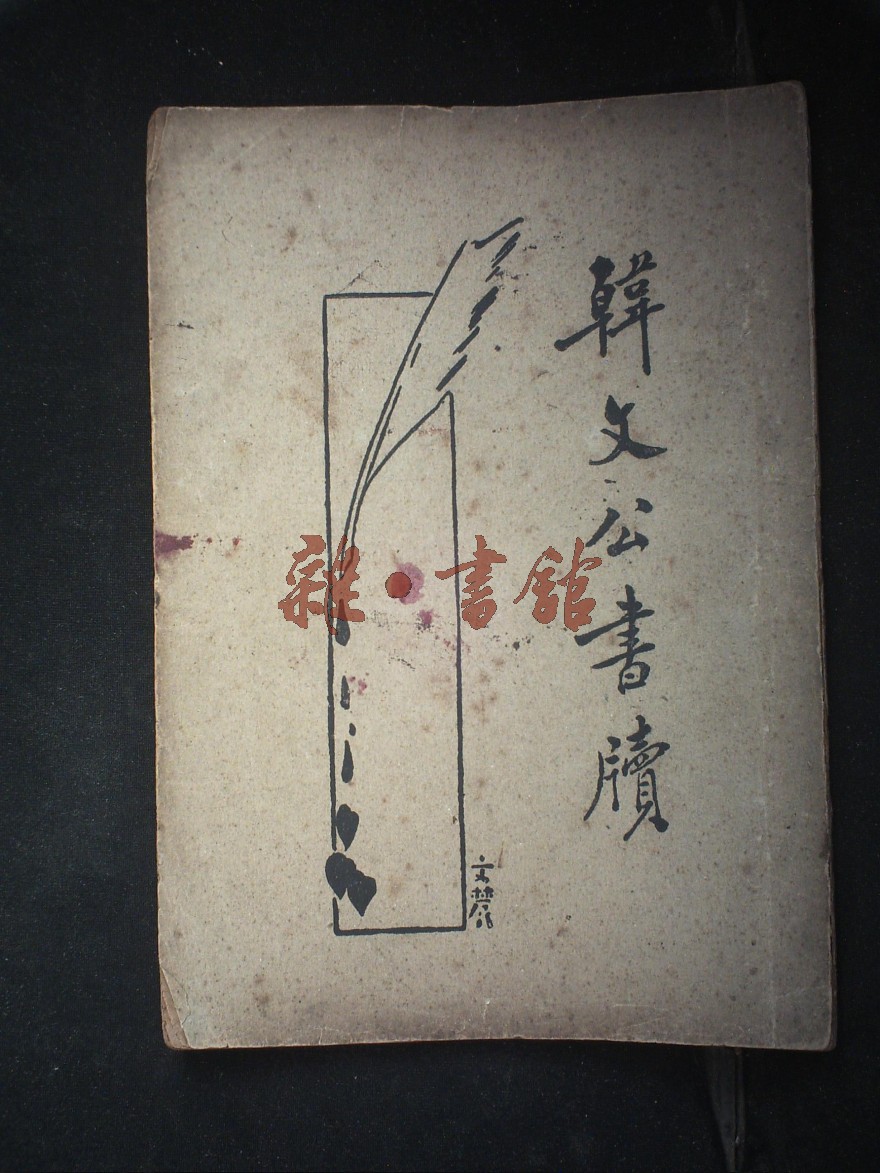 韓文公書牘
雜·書館